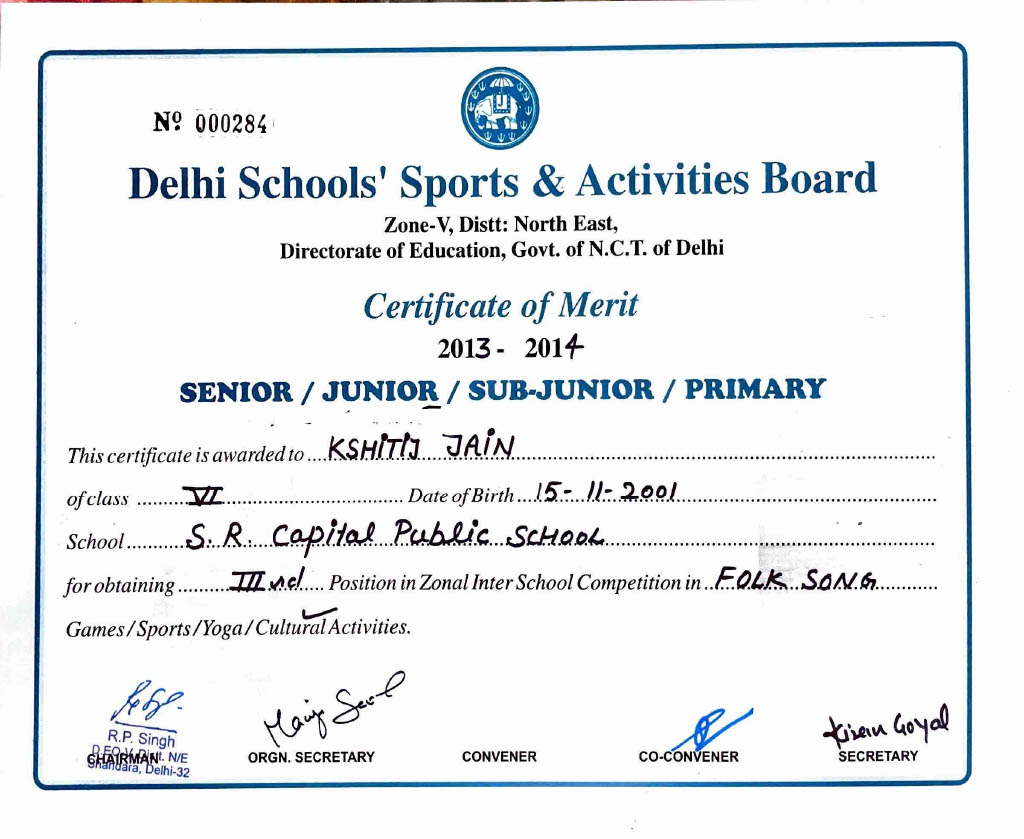 Nº 000284
Delhi Schools' Sports & Activities Board
Zone-V, Distt: North East,
Directorate of Education, Govt. of N.C.T. of Delhi
Certificate of Merit
2013 - 2014
SENIOR / JUNIOR / SUB-JUNIOR / PRIMARY
This certificate is awarded to ... KSHITIJ JAIN
of class ... VI ... Date of Birth ... 15-11-2001
School ... S. R. Capital Public SCHOOL
for obtaining ... IIIrd ... Position in Zonal Inter School Competition in ... FOLK SONG
Games / Sports / Yoga / Cultural Activities.
R.P. Singh
D.E.O. V, Distt. N/E
Shahdara, Delhi-32
CHAIRMAN
ORGN. SECRETARY
CONVENER
CO-CONVENER
Kiran Goyal
SECRETARY